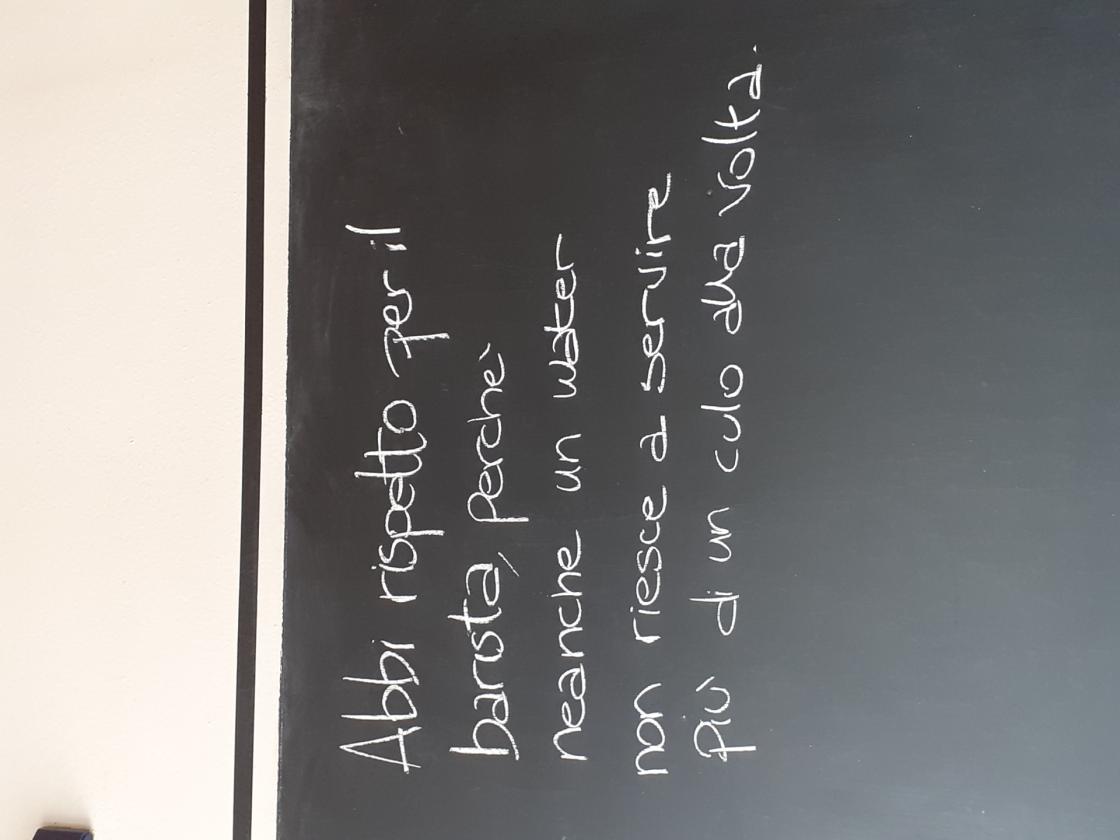 Abbi rispetto per il
barista, perchè
neanche un water
non riesce a servire
più di un culo alla volta.